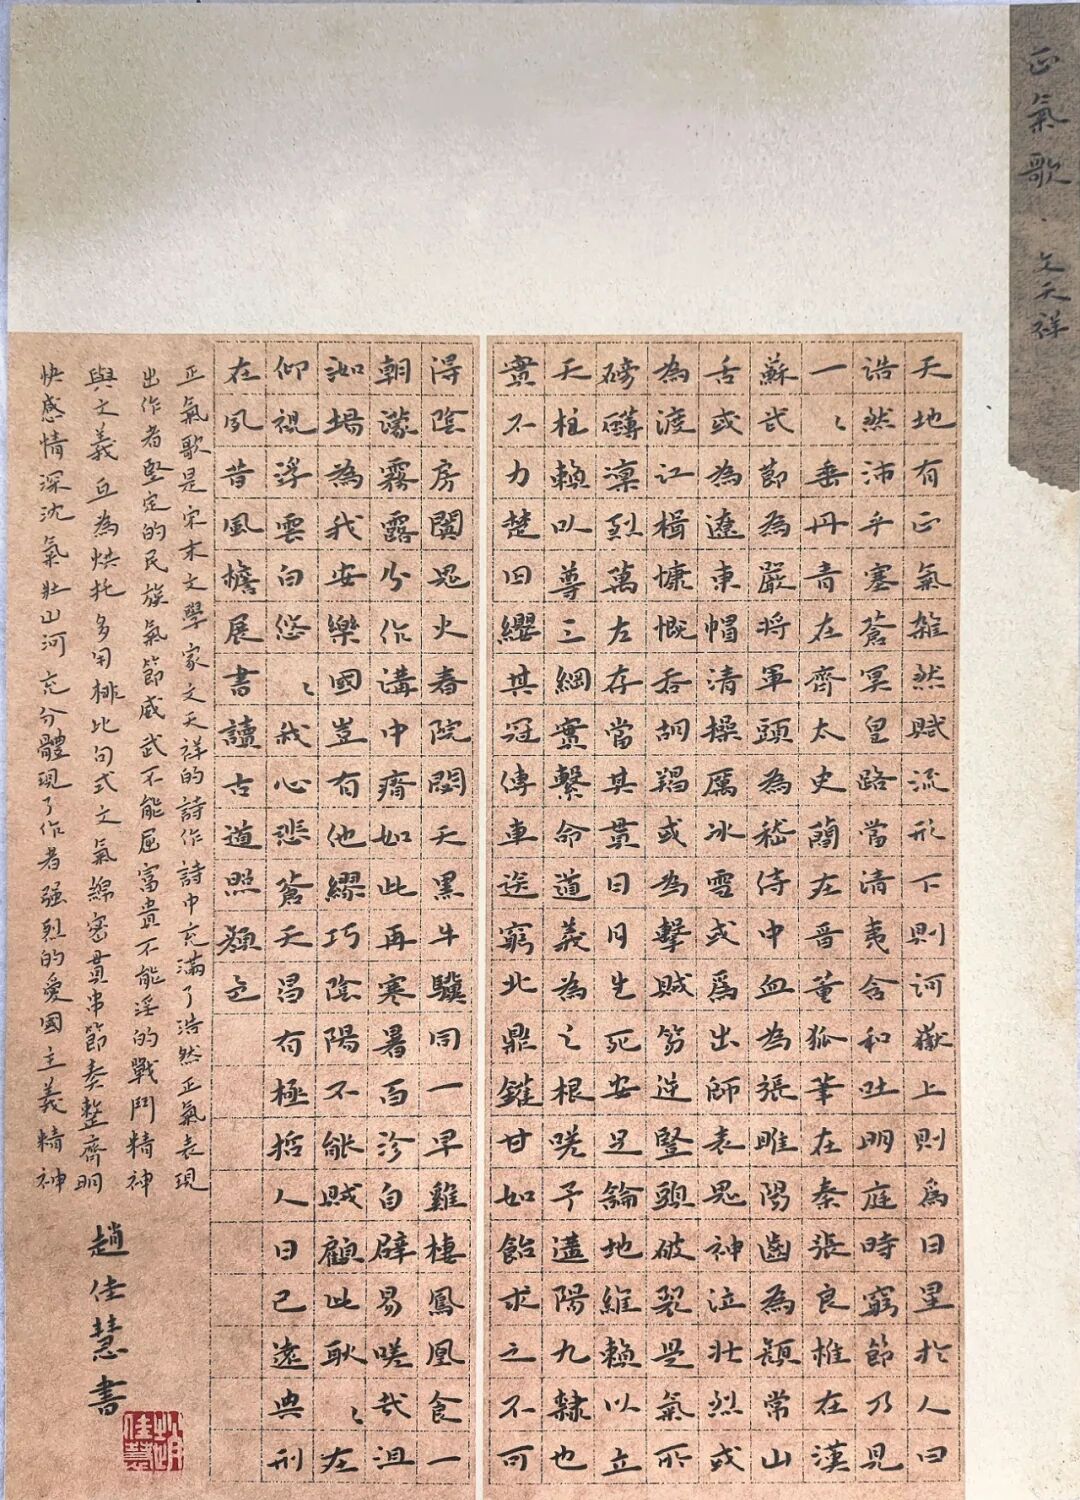 正氣歌·文天祥
天地有正氣雜然賦流形下則河嶽上則爲日星於人曰
浩然沛乎塞蒼冥皇路當清夷含和吐明庭時窮節乃見
一〻垂丹青在齊太史蕳在晉董狐筆在秦張良椎在漢
蘇武節為嚴將軍頭為嵇侍中血為張睢陽齒為顔常山
舌或為遼東帽清操厲冰雪或爲出師表鬼神泣壯烈或
為渡江楫慷慨吞胡羯或為擊賊笏逆豎頭破裂是氣所
磅礴凜烈萬古存當其貫日月生死安足論地維賴以立
天柱賴以尊三綱實繫命道義為之根嗟予遘陽九隸也
實不力楚囚纓其冠傳車送窮北鼎鑊甘如飴求之不可
得陰房闃鬼火春院閟天黑牛驥同一早雞棲鳳凰食一
朝濛霧露分作溝中瘠如此再寒暑百沴自辟易嗟哉沮
洳場為我安樂國豈有他繆巧陰陽不能賊顧此耿〻在
仰視浮雲白悠〻我心悲蒼天曷有極哲人日已遠典刑
在夙昔風檐展書讀古道照顔色
正氣歌是宋末文學家文天祥的詩作詩中充滿了浩然正氣表現
出作者堅定的民族氣節威武不能屈富貴不能淫的戰鬥精神
與文義互為烘托多用排比句式文氣綿密貫串節奏整齊明
快感情深沈氣壯山河充分體現了作者强烈的愛國主義精神
趙佳慧書
趙佳慧